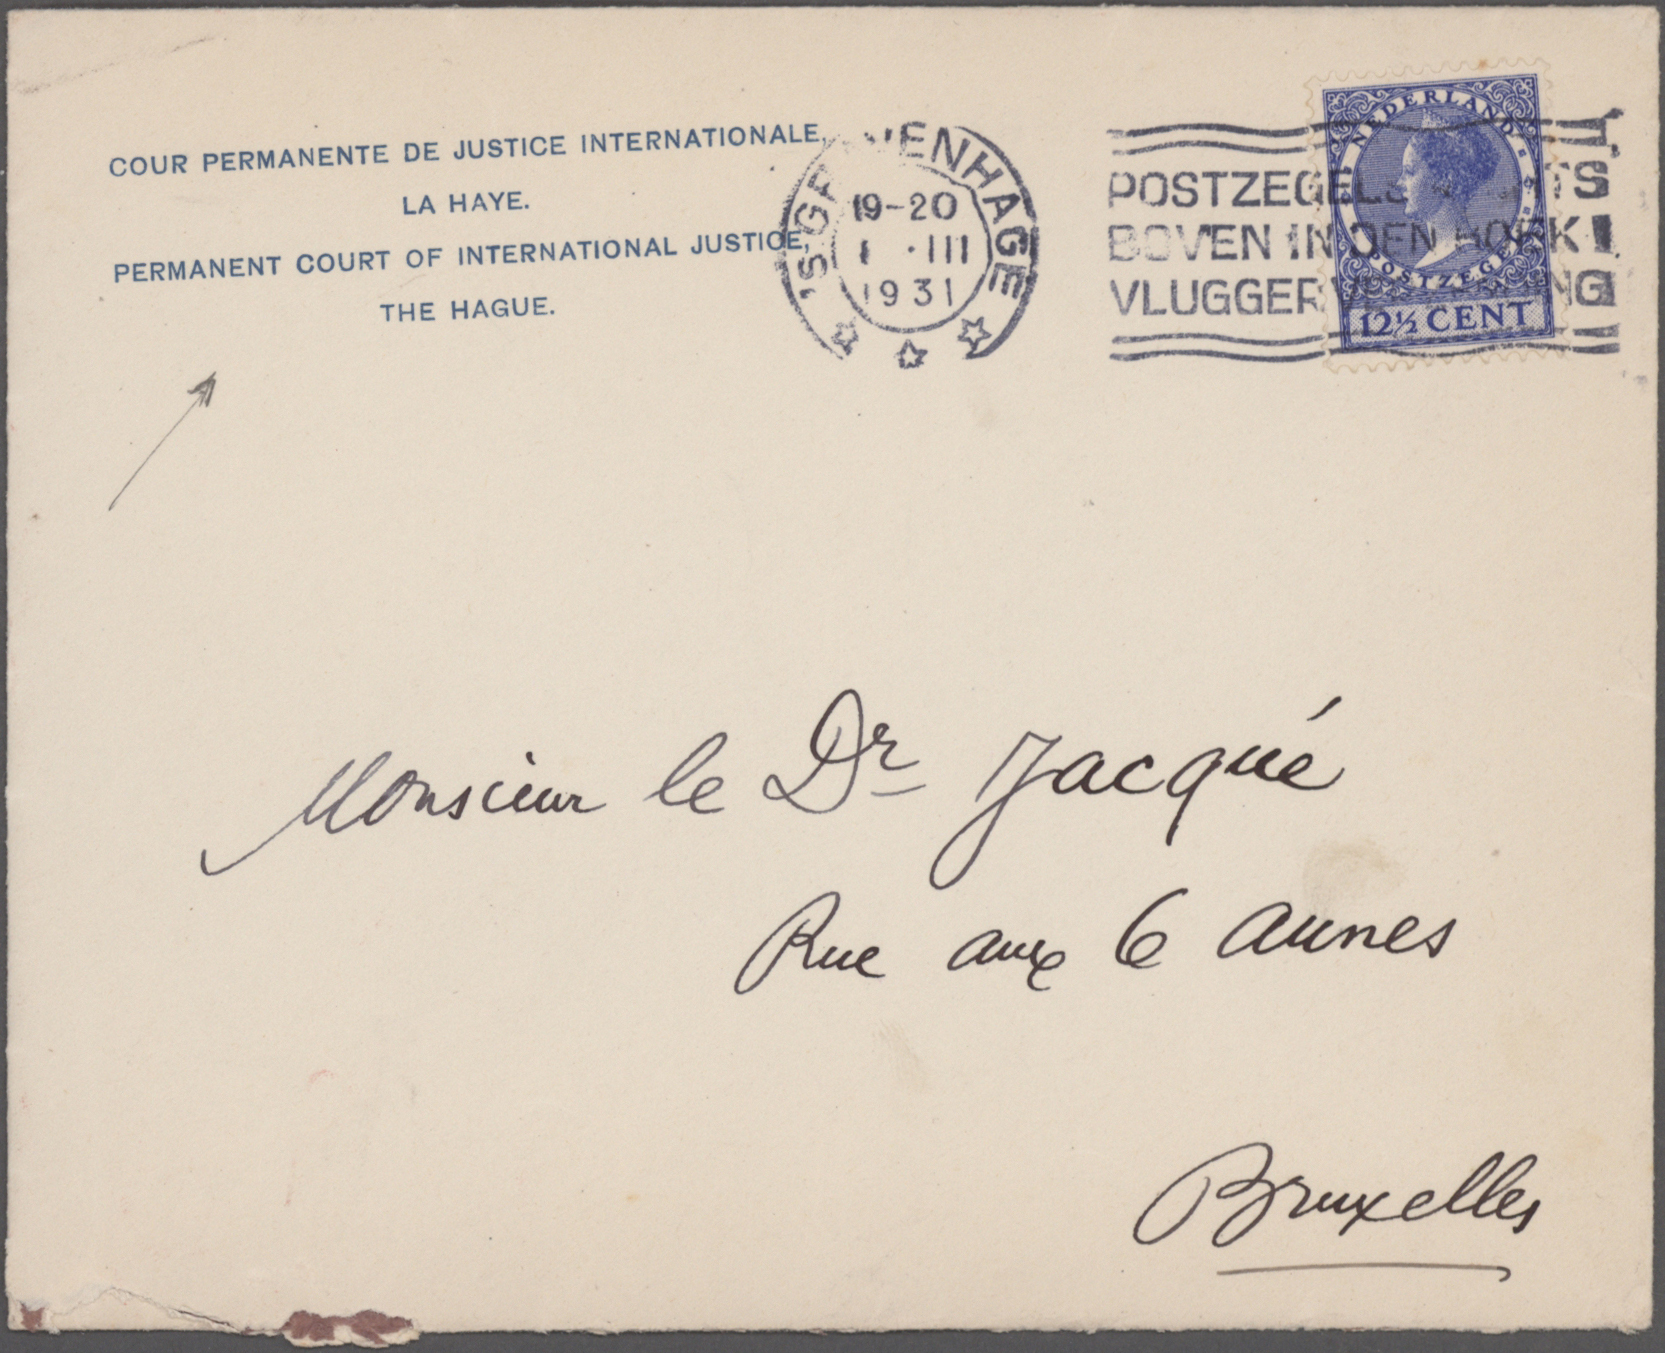 COUR PERMANENTE DE JUSTICE INTERNATIONALE,
LA HAYE.
PERMANENT COURT OF INTERNATIONAL JUSTICE,
THE HAGUE.
'S GRAVENHAGE
19-20
1 · III
1931
POSTZEGELS RECHTS
BOVEN IN DEN HOEK!
VLUGGER
NEDERLAND
POSTZEGEL
12½ CENT
Monsieur le Dr Jacqué
Rue aux 6 aunes
Bruxelles